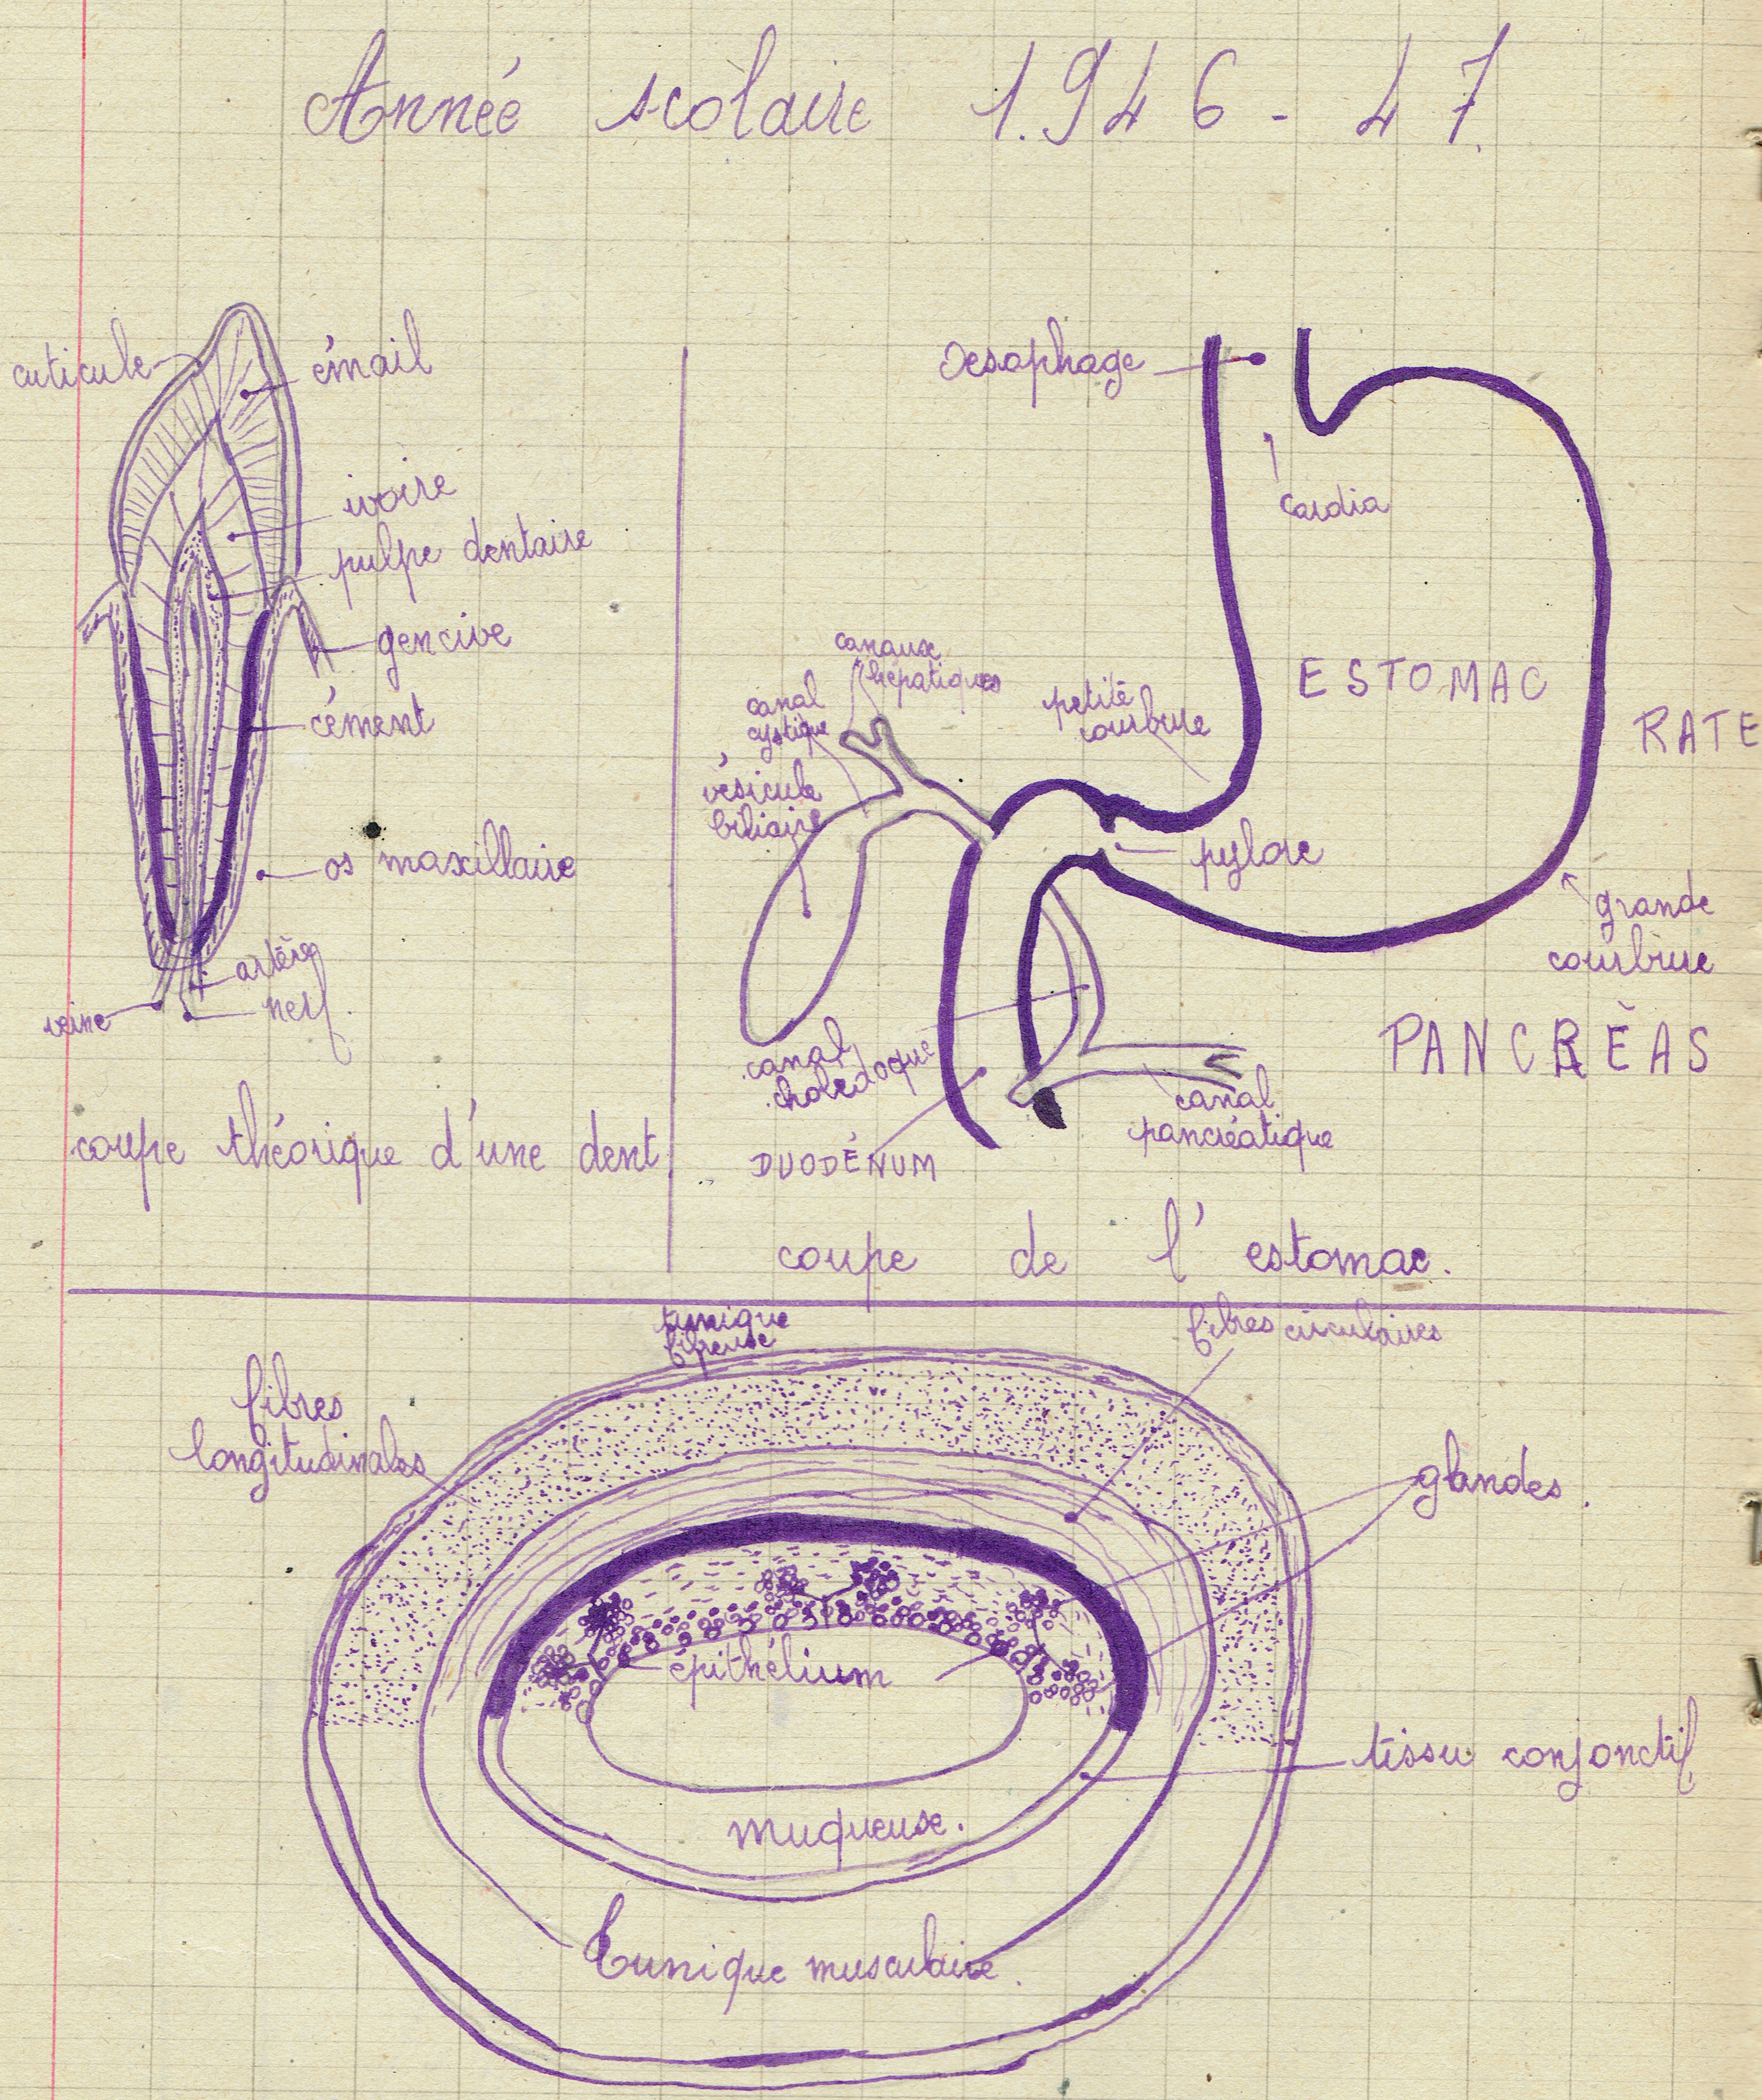 Année scolaire 1.946-47.
cuticule
émail
ivoire
pulpe dentaire
gencive
cément
os maxillaire
artère
nerf.
veine
coupe théorique d'une dent
Oesophage
cardia
ESTOMAC
RATE
canaux
hépatiques
canal
cystique
vésicule
biliaire
petite
courbure
pylore
grande
courbure
PANCRÉAS
canal
cholédoque
canal
pancréatique
DUODÉNUM
coupe de l'estomac.
tunique
fibreuse
fibres circulaires
fibres
longitudinales
glandes.
épithélium
tissu conjonctif
muqueuse.
Tunique musculaire.